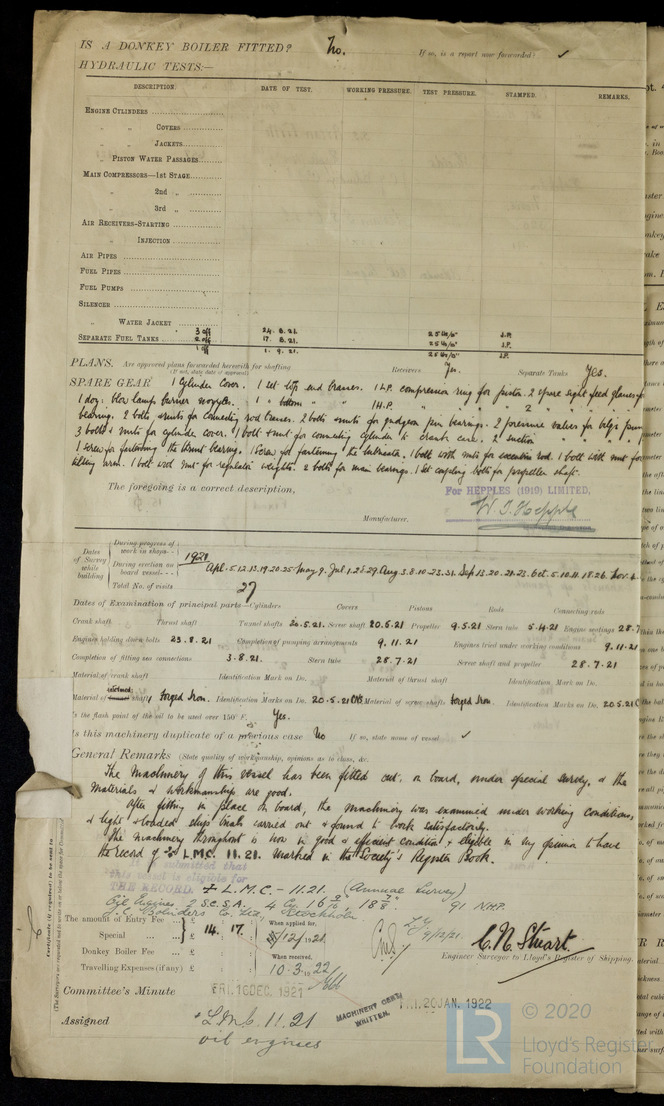 IS A DONKEY BOILER FITTED? No. If so, is a report now forwarded? ✓
HYDRAULIC TESTS:—
DESCRIPTION. DATE OF TEST. WORKING PRESSURE. TEST PRESSURE. STAMPED. REMARKS.
ENGINE CYLINDERS
" " COVERS
" " JACKETS
" PISTON WATER PASSAGES
MAIN COMPRESSORS—1st STAGE
" 2nd "
" 3rd "
AIR RECEIVERS-STARTING
" INJECTION
AIR PIPES
FUEL PIPES
FUEL PUMPS
SILENCER
" WATER JACKET
3 off 24. 8. 21. 25 lb/□" J.P.
SEPARATE FUEL TANKS 2 off 17. 8. 21. 25 lb/□" J.P.
1 off 1. 9. 21. 25 lb/□" J.P.
PLANS. Are approved plans forwarded herewith for shafting Receivers Separate Tanks Yes.
(If not, state date of approval)
SPARE GEAR 1 Cylinder Cover. 1 set top end brasses. 1 L.P. compression ring for piston. 2 spare sight feed glasses for
1 doz: blow lamp burner nozzles. 1 " bottom " 1 H.P. " " " 2 " "
bearing. 2 bolts & nuts for connecting rod brasses. 2 bolts & nuts for gudgeon pin bearings. 2 pressure valves for bilge pump
3 bolts & nuts for cylinder cover. 1 bolt & nut for connecting cylinder to crank case. 2 suction " " " "
1 screw for fastening the thrust bearing. 1 screw for fastening the lubricator. 1 bolt with nut for eccentric rod. 1 bolt with nut for
arm. 1 bolt and nut for regulator weights. 2 bolts for main bearings. 1 set coupling bolts for propeller shaft.
The foregoing is a correct description,
For HEPPLES (1919) LIMITED,
Manufacturer.
Dates of Survey while building
During progress of work in shops - -
During erection on board vessel - - -
1921 Apl. 5. 12. 13. 19. 20. 25 May 9. Jul 1. 28. 29 Aug 3. 8. 10. 23. 31. Sep 13. 20. 21. 23. Oct. 5. 10. 11. 18. 26. Nov. 4.
Total No. of visits 27
Dates of Examination of principal parts—Cylinders Covers Pistons Rods Connecting rods
Crank shaft Thrust shaft Tunnel shafts 20.5.21. Screw shaft 20.6.21 Propeller 9.5.21 Stern tube 5.4.21 Engine seatings 28.7
Engines holding down bolts 23.8.21 Completion of pumping arrangements 9.11.21 Engines tried under working conditions 9.11.21
Completion of fitting sea connections 3.8.21. Stern tube 28.7.21 Screw shaft and propeller 28.7.21
Material of crank shaft Identification Mark on Do. Material of thrust shaft Identification Mark on Do.
Material of shafts Forged Iron. Identification Marks on Do. 20.5.21 Material of screw shafts Forged Iron Identification Marks on Do. 20.5.21
Is the flash point of the oil to be used over 150° F. Yes.
Is this machinery duplicate of a previous case No If so, state name of vessel ✓
General Remarks (State quality of workmanship, opinions as to class, &c.
The Machinery of this vessel has been fitted out on board, under special survey, & the
materials & workmanship are good.
After fitting in place on board, the machinery was examined under working conditions,
& light & loaded ships trials carried out & found to work satisfactorily.
The machinery throughout is now in good & efficient condition & eligible in my opinion to have
the record of L.M.C. 11.21. marked in the Society's Register Book.
It is submitted that
this vessel is eligible for
THE RECORD. + L.M.C. - 11.21. (Annual Survey)
Oil Engines 2 S.C.S.A. 4 Cy. 91 N.H.P.
J. & C. G. Bolinders Co. Ltd., Stockholm
The amount of Entry Fee ... £
Special ... £ 14. 17.
Donkey Boiler Fee ... £
Travelling Expenses (if any) £
When applied for,
/12/1921
When received,
10.3.1922
9/12/21
C. N. Stuart.
Engineer Surveyor to Lloyd's Register of Shipping.
Committee's Minute FRI. 16 DEC. 1921 FRI. 20 JAN. 1922
MACHINERY CERT.
WRITTEN.
Assigned + L.M.C. 11.21
oil engines
Certificate (if required) to be sent to
© 2020
Lloyd's Register
Foundation